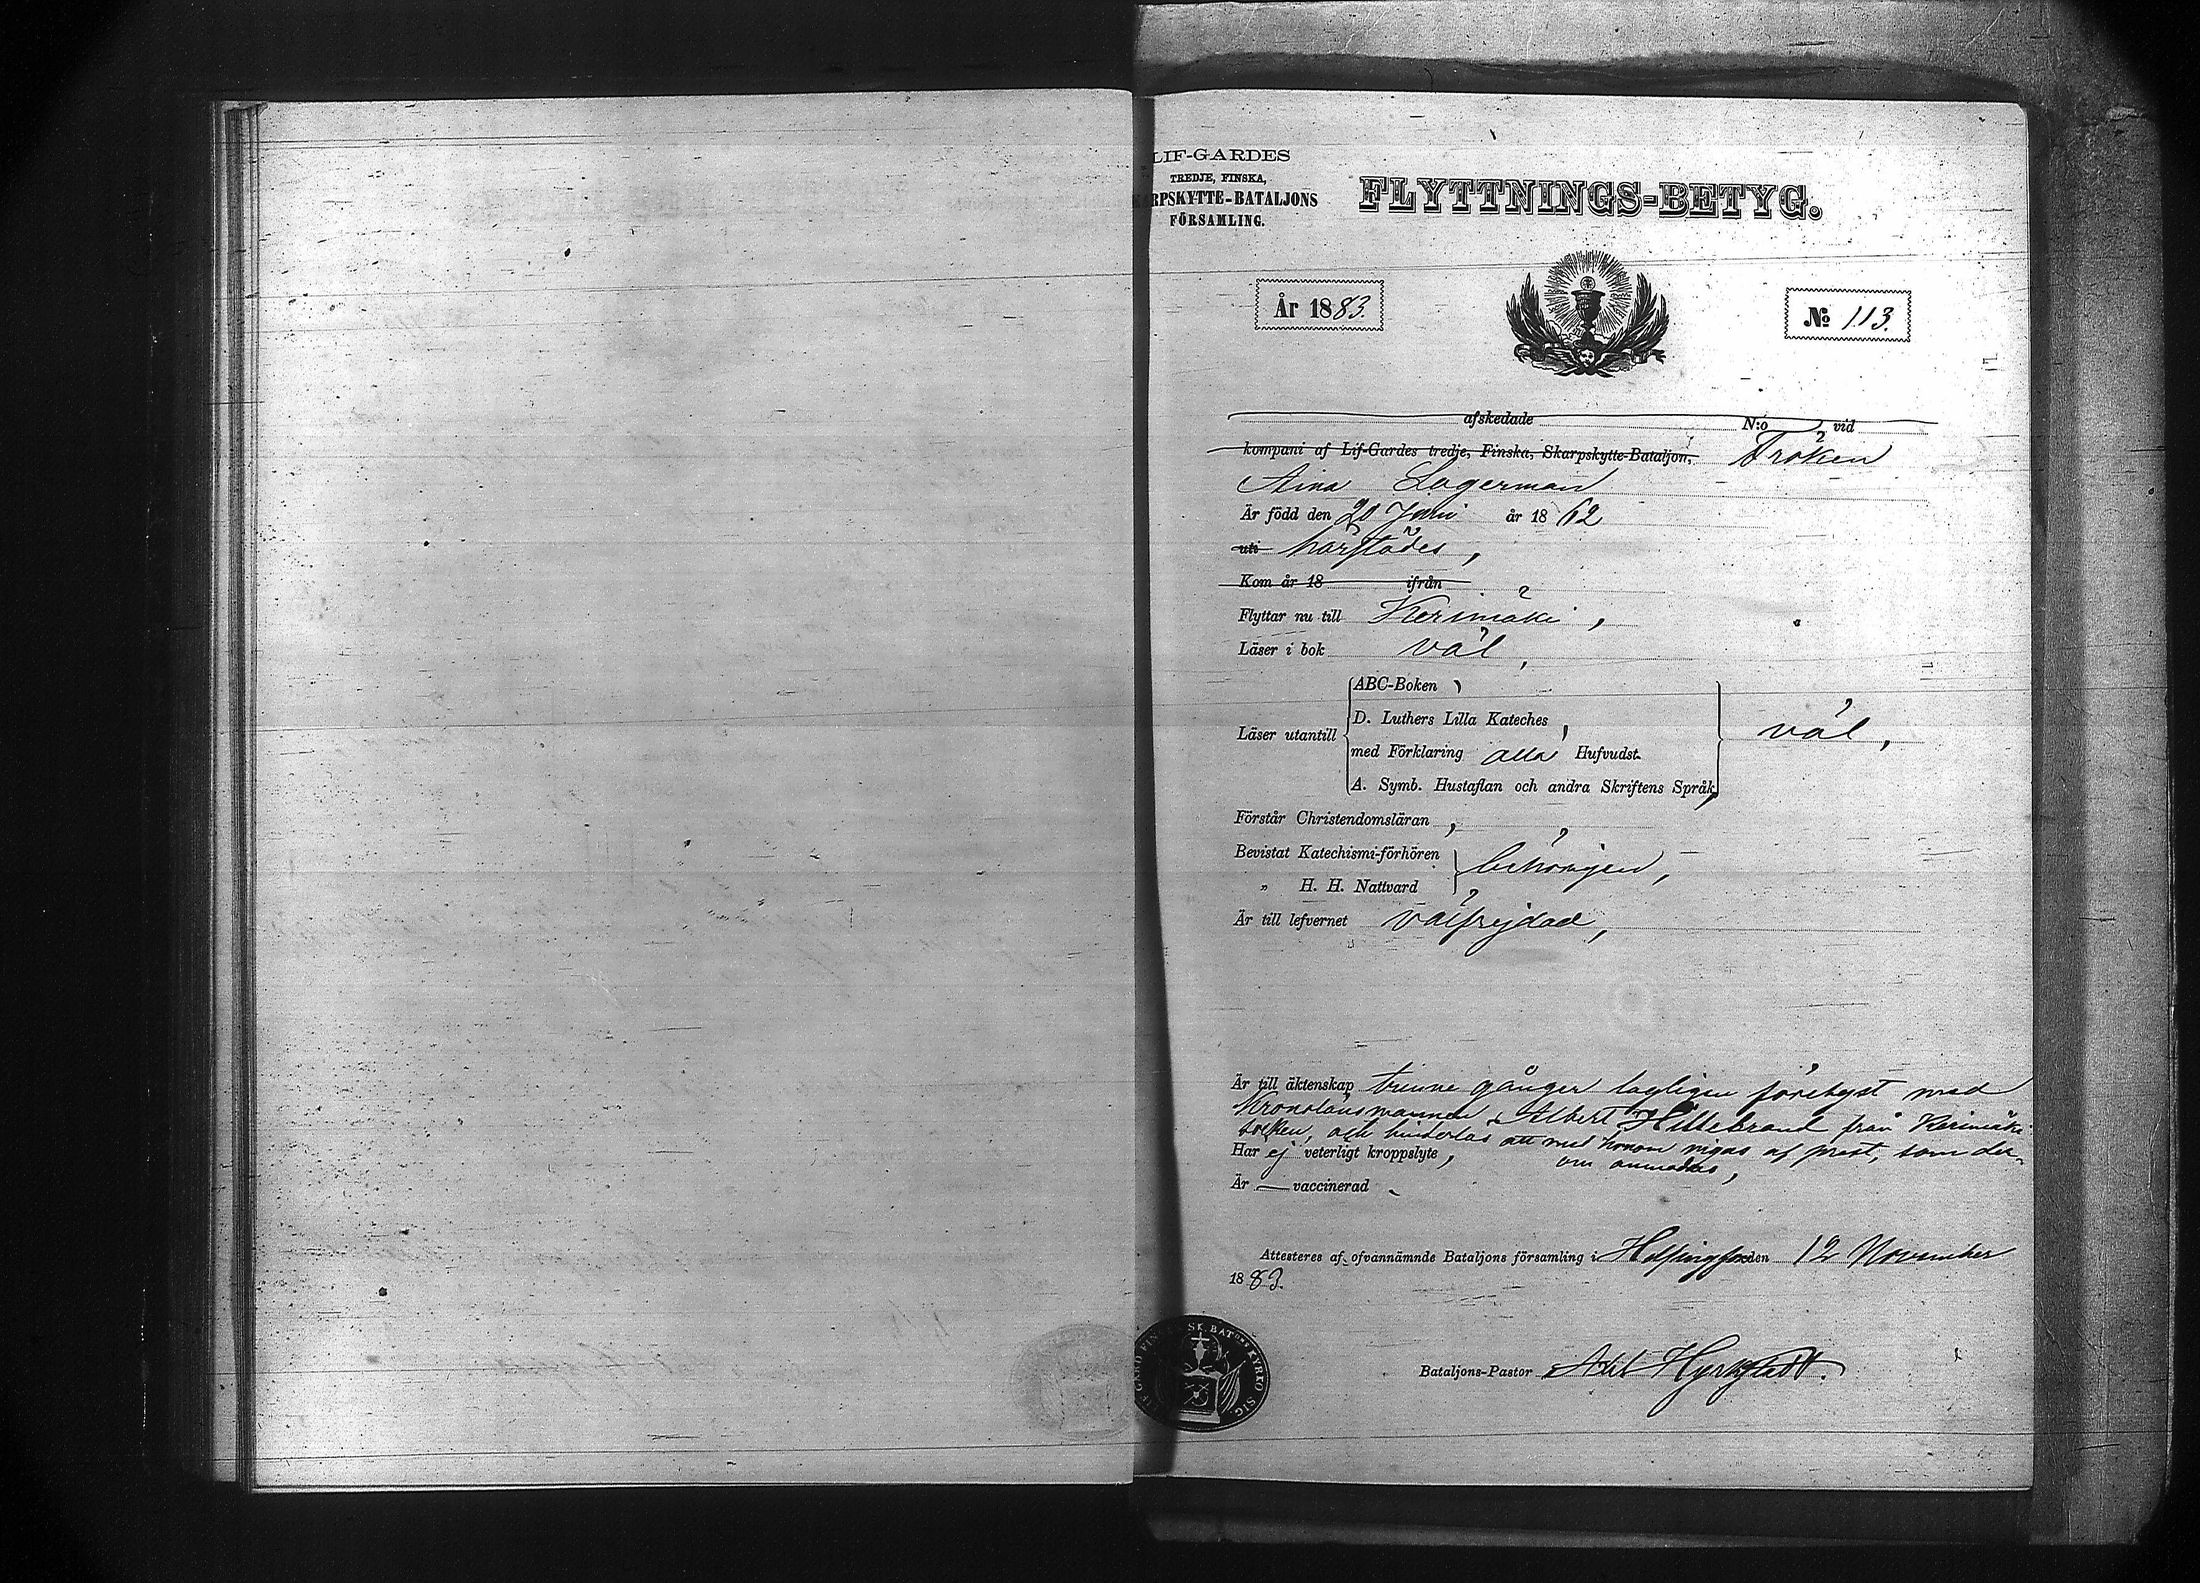 LIF-GARDES
TREDJE, FINSKA,
RPSKYTTE-BATALJONS
FÖRSAMLING.
FLYTTNINGS-BETYG.
År 1883.
No 113.
afskedade N:o vid
kompani af Lif-Gardes tredje, Finska, Skarpskytte-Bataljon, Fröken
Aina Lagerman
Är född den 20 Juni år 1862
uti härstädes,
Kom år 18 ifrån
Flyttar nu till Kerimäki,
Läser i bok väl,
ABC-Boken,
D. Luthers Lilla Kateches,
Läser utantill
med Förklaring alla Hufvudst.
A. Symb. Hustaflan och andra Skriftens Språk,
väl,
Förstår Christendomsläran,
Bevistat Katechismi-förhören
„ H. H. Nattvard
behörigen,
Är till lefvernet välfrejdad,
Är till äktenskap trenne gånger lagligen förelyst med
Kronolänsmannen Albert Hillebrand från Kerimäki
socken, och hinderlös att med honom vigas af prest, som der-
om anmodas,
Har ej veterligt kroppslyte,
Är — vaccinerad
Attesteres af ofvannämnde Bataljons församling i Helsingfors den 12 November
1883.
Bataljons-Pastor Axel Hjerpstedt.